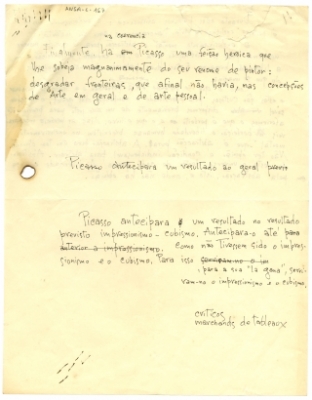 na coerencia
Finalmente, há em Picasso uma feição heroica que
lhe sobeja magnanimamente do seu renome de pintor:
desagradar fronteiras, que afinal não havia, nas concepções
de Arte em geral e de arte pessoal.
Picasso antecipara um resultado ao geral previsto
Picasso antecipara um resultado ao resultado
previsto impressionismo-cubismo. Antecipara-o até para
anterior a impressionismo. como não tivessem sido o impres-
sionismo e o cubismo. Para isso
, para a sua "la gana", servi-
ram-no o impressionismo e o cubismo,
críticos
marchands de tableaux